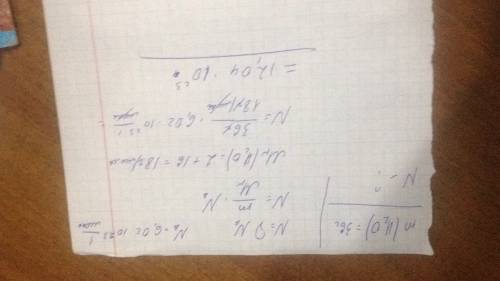 m(H₂O) = 36г
N - ?
N = ν Nₐ Nₐ = 6,02 · 10²³ 1/моль
N = m/Mᵣ · Nₐ
Mᵣ(H₂O) = 2 + 16 = 18 г/моль
N = 36г/18г/моль · 6,02 · 10²³ 1/моль =
= 12,04 · 10²³